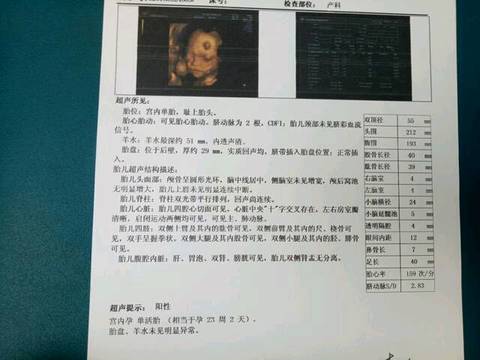 床号:
检查部位: 产科
超声所见:
胎位: 宫内单胎, 耻上胎头。
胎心胎动: 可见胎心胎动。脐动脉为 2 根, CDFI: 胎儿颈部未见脐彩血流
信号。
羊水: 羊水最深约 51 mm, 内透声清。
胎盘: 位于后壁, 厚约 29 mm, 实质回声均, 脐带插入胎盘位置: 正常插
入。
胎儿超声结构描述:
胎儿头面部: 颅骨呈圆形光环, 脑中线居中, 侧脑室未见增宽, 颅后窝池
无明显增大, 胎儿上唇未见明显连续中断。
胎儿脊柱: 脊柱双光带平行排列, 回声尚连续。
胎儿心脏: 胎儿四腔心切面可见。心脏中央"十"字交叉存在, 左右房室瓣
清晰, 启闭运动两侧均可见, 可见主、肺动脉。
胎儿四肢: 双侧上臂及其内的肱骨可见, 双侧前臂及其内的尺、桡骨可
见, 双手呈握拳状。双侧大腿及其内股骨可见, 双侧小腿及其内的胫、腓骨
可见。
胎儿腹腔内脏: 肝、胃泡、双肾、膀胱可见, 胎儿双侧肾盂无分离。
双顶径 55 mm
头围 212 mm
腹围 193 mm
股骨长 40 mm
肱骨长 39 mm
右脑室 4 mm
左脑室 4 mm
小脑横径 24 mm
小脑延髓池 5 mm
透明隔腔 4 mm
眼间内距 12 mm
鼻骨长 7 mm
足长 40 mm
胎心率 159 次/分
脐动脉S/D 2.83
超声提示: 阳性
宫内孕 单活胎 (相当于孕 23 周 2 天)。
胎盘、羊水未见明显异常。